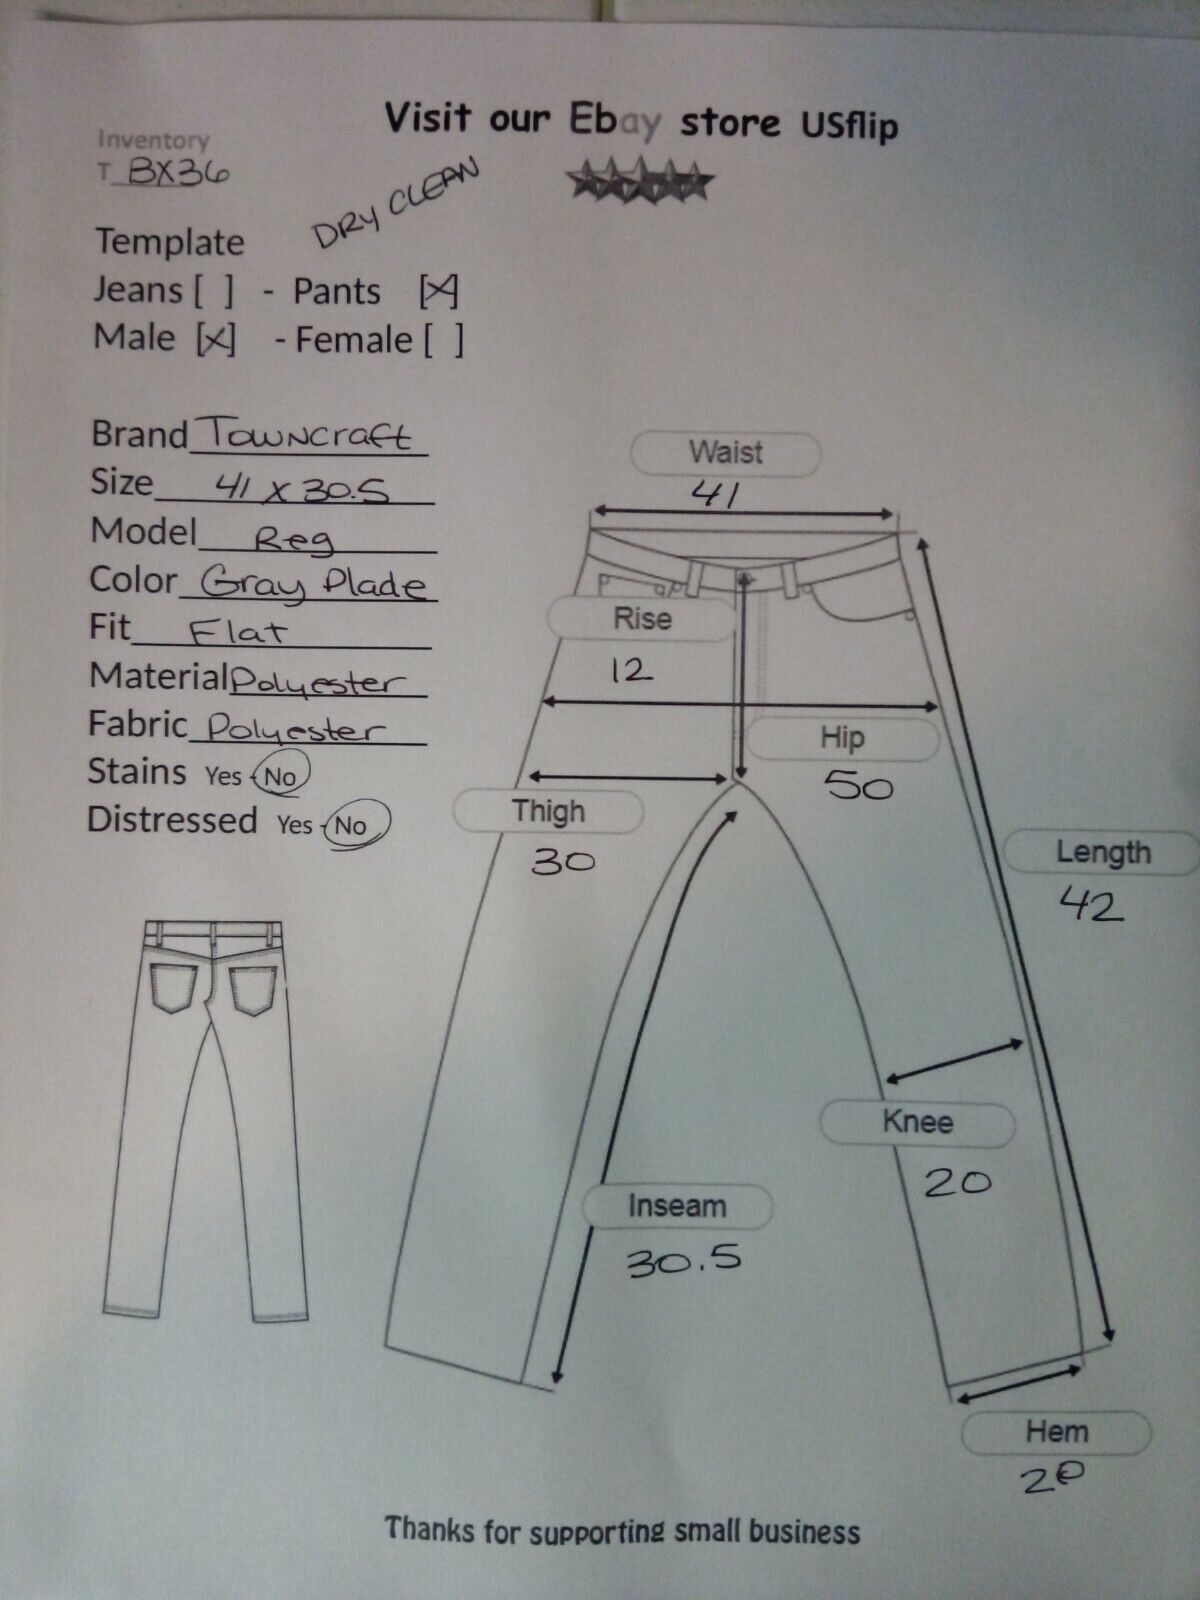 Visit our Ebay store USflip
Inventory
T BX36
DRY CLEAN
Template
Jeans [ ] - Pants [X]
Male [X] - Female [ ]
Brand Towncraft
Size 41 x 30.5
Model Reg
Color Gray Plade
Fit Flat
Material Polyester
Fabric Polyester
Stains Yes - No
Distressed Yes - No
Waist
41
Rise
12
Hip
50
Thigh
30
Length
42
Knee
20
Inseam
30.5
Hem
20
Thanks for supporting small business